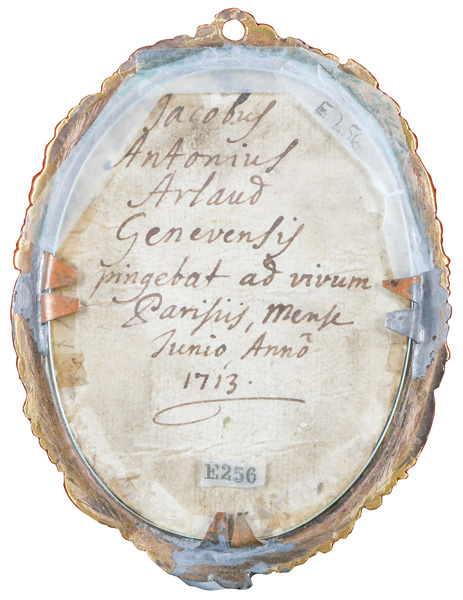 Jacobus
Antonius
Arlaud
Genevensis
pingebat ad vivum
Parisiis, Mense
Iunio, Anno
1713.
E256
E 256